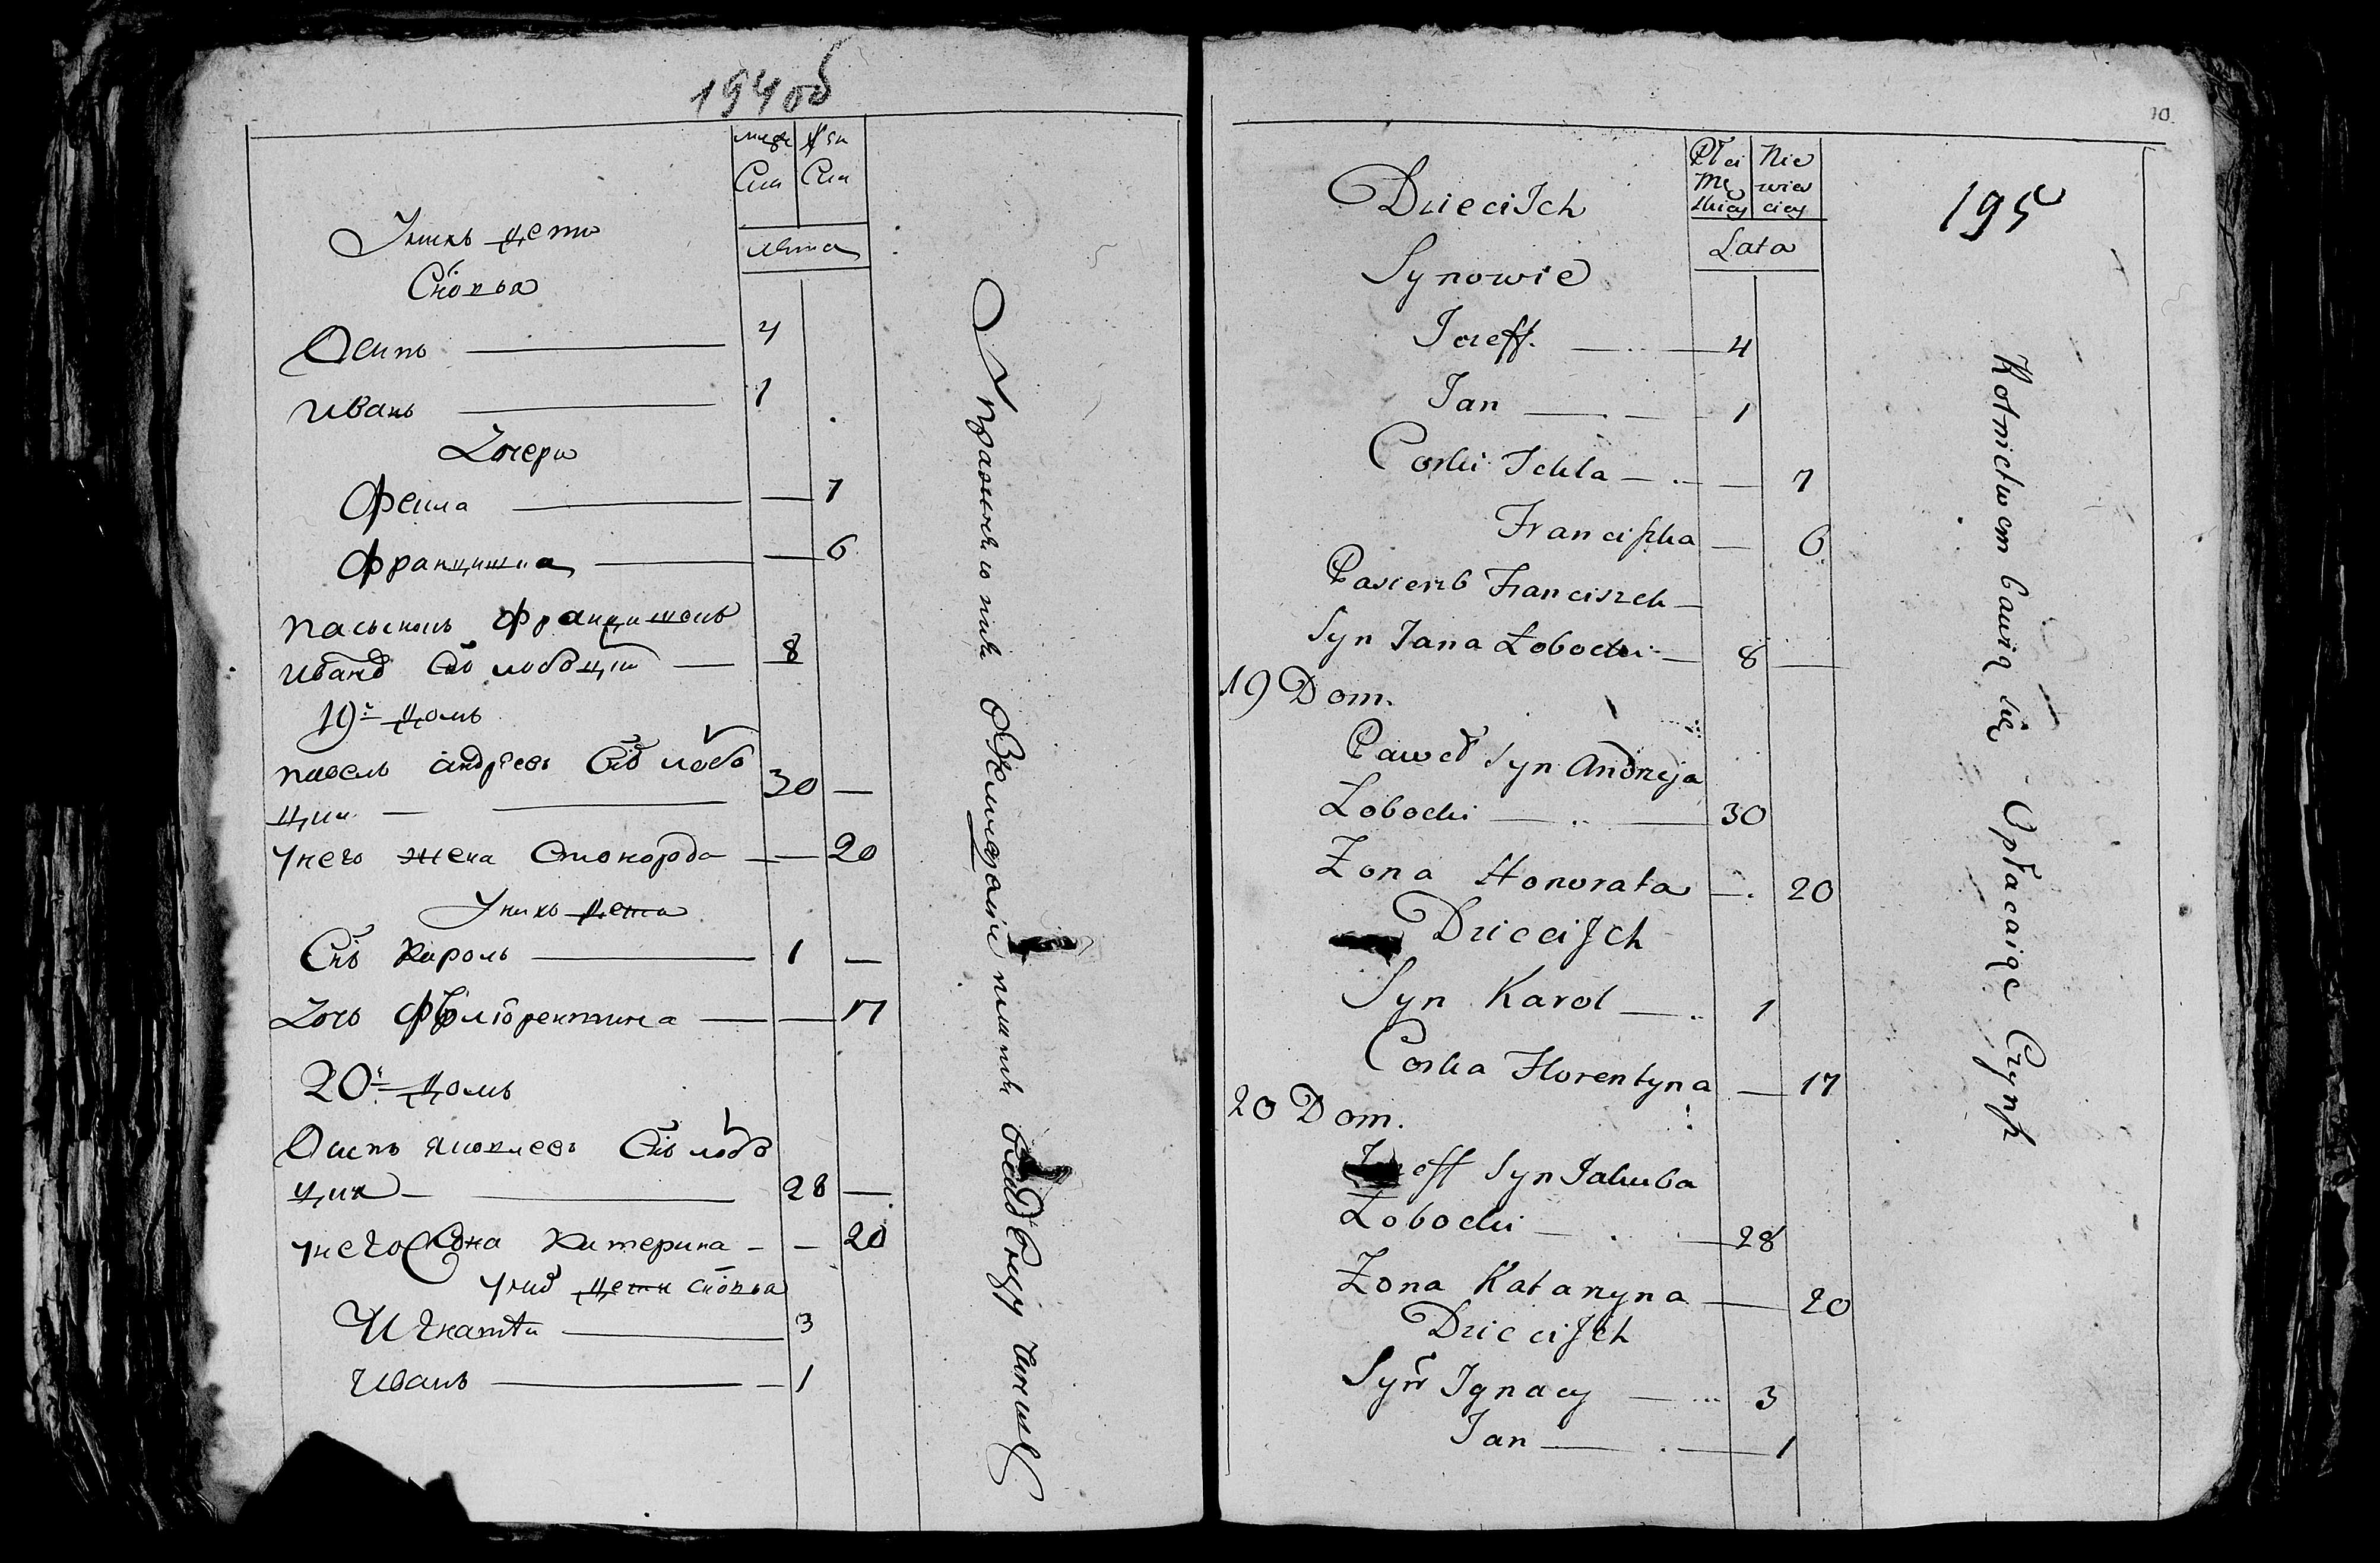 194об
муж жен
Ска Ска
лѣта
У нихъ дети
Сновья
Осипъ 4
Иванъ 1
Дочери
Фекла 7
Францишка 6
Пасынокъ Францишекъ
Ивановъ Снъ Лобоцкий 8
19й домъ
Павелъ Андреевъ Снъ Лобо
цки 30
У него жена Онорода 20
У нихъ дети
Снъ Кароль 1
Дочь Флюрентина 17
20й домъ
Осипъ Яковлевъ Снъ Лобо
цки 28
У него жона Катерина 20
У них дети Сновья
Игнатий 3
Иванъ 1
Упражняются в Земледелии
10.
195
Płci Nie
Mę wie
skiey ciey
Lata
Dzieci Ich
Synowie
Iozeff. 4
Ian 1
Corki Tekla 7
Franciszka 6
Pasierzb Franciszek
Syn Iana Łobocki 8
19 Dom.
Paweł Syn Andrzeja
Łobocki 30
Żona Honorata 20
Dzieci Ich
Syn Karol 1
Corka Florentyna 17
20 Dom.
Iozeff Syn Iakuba
Łobocki 28
Żona Katarzyna 20
Dzieci Ich
Syn Ignacy 3
Ian 1
Rolnictwem bawią się Opłacaiąc Czynsz